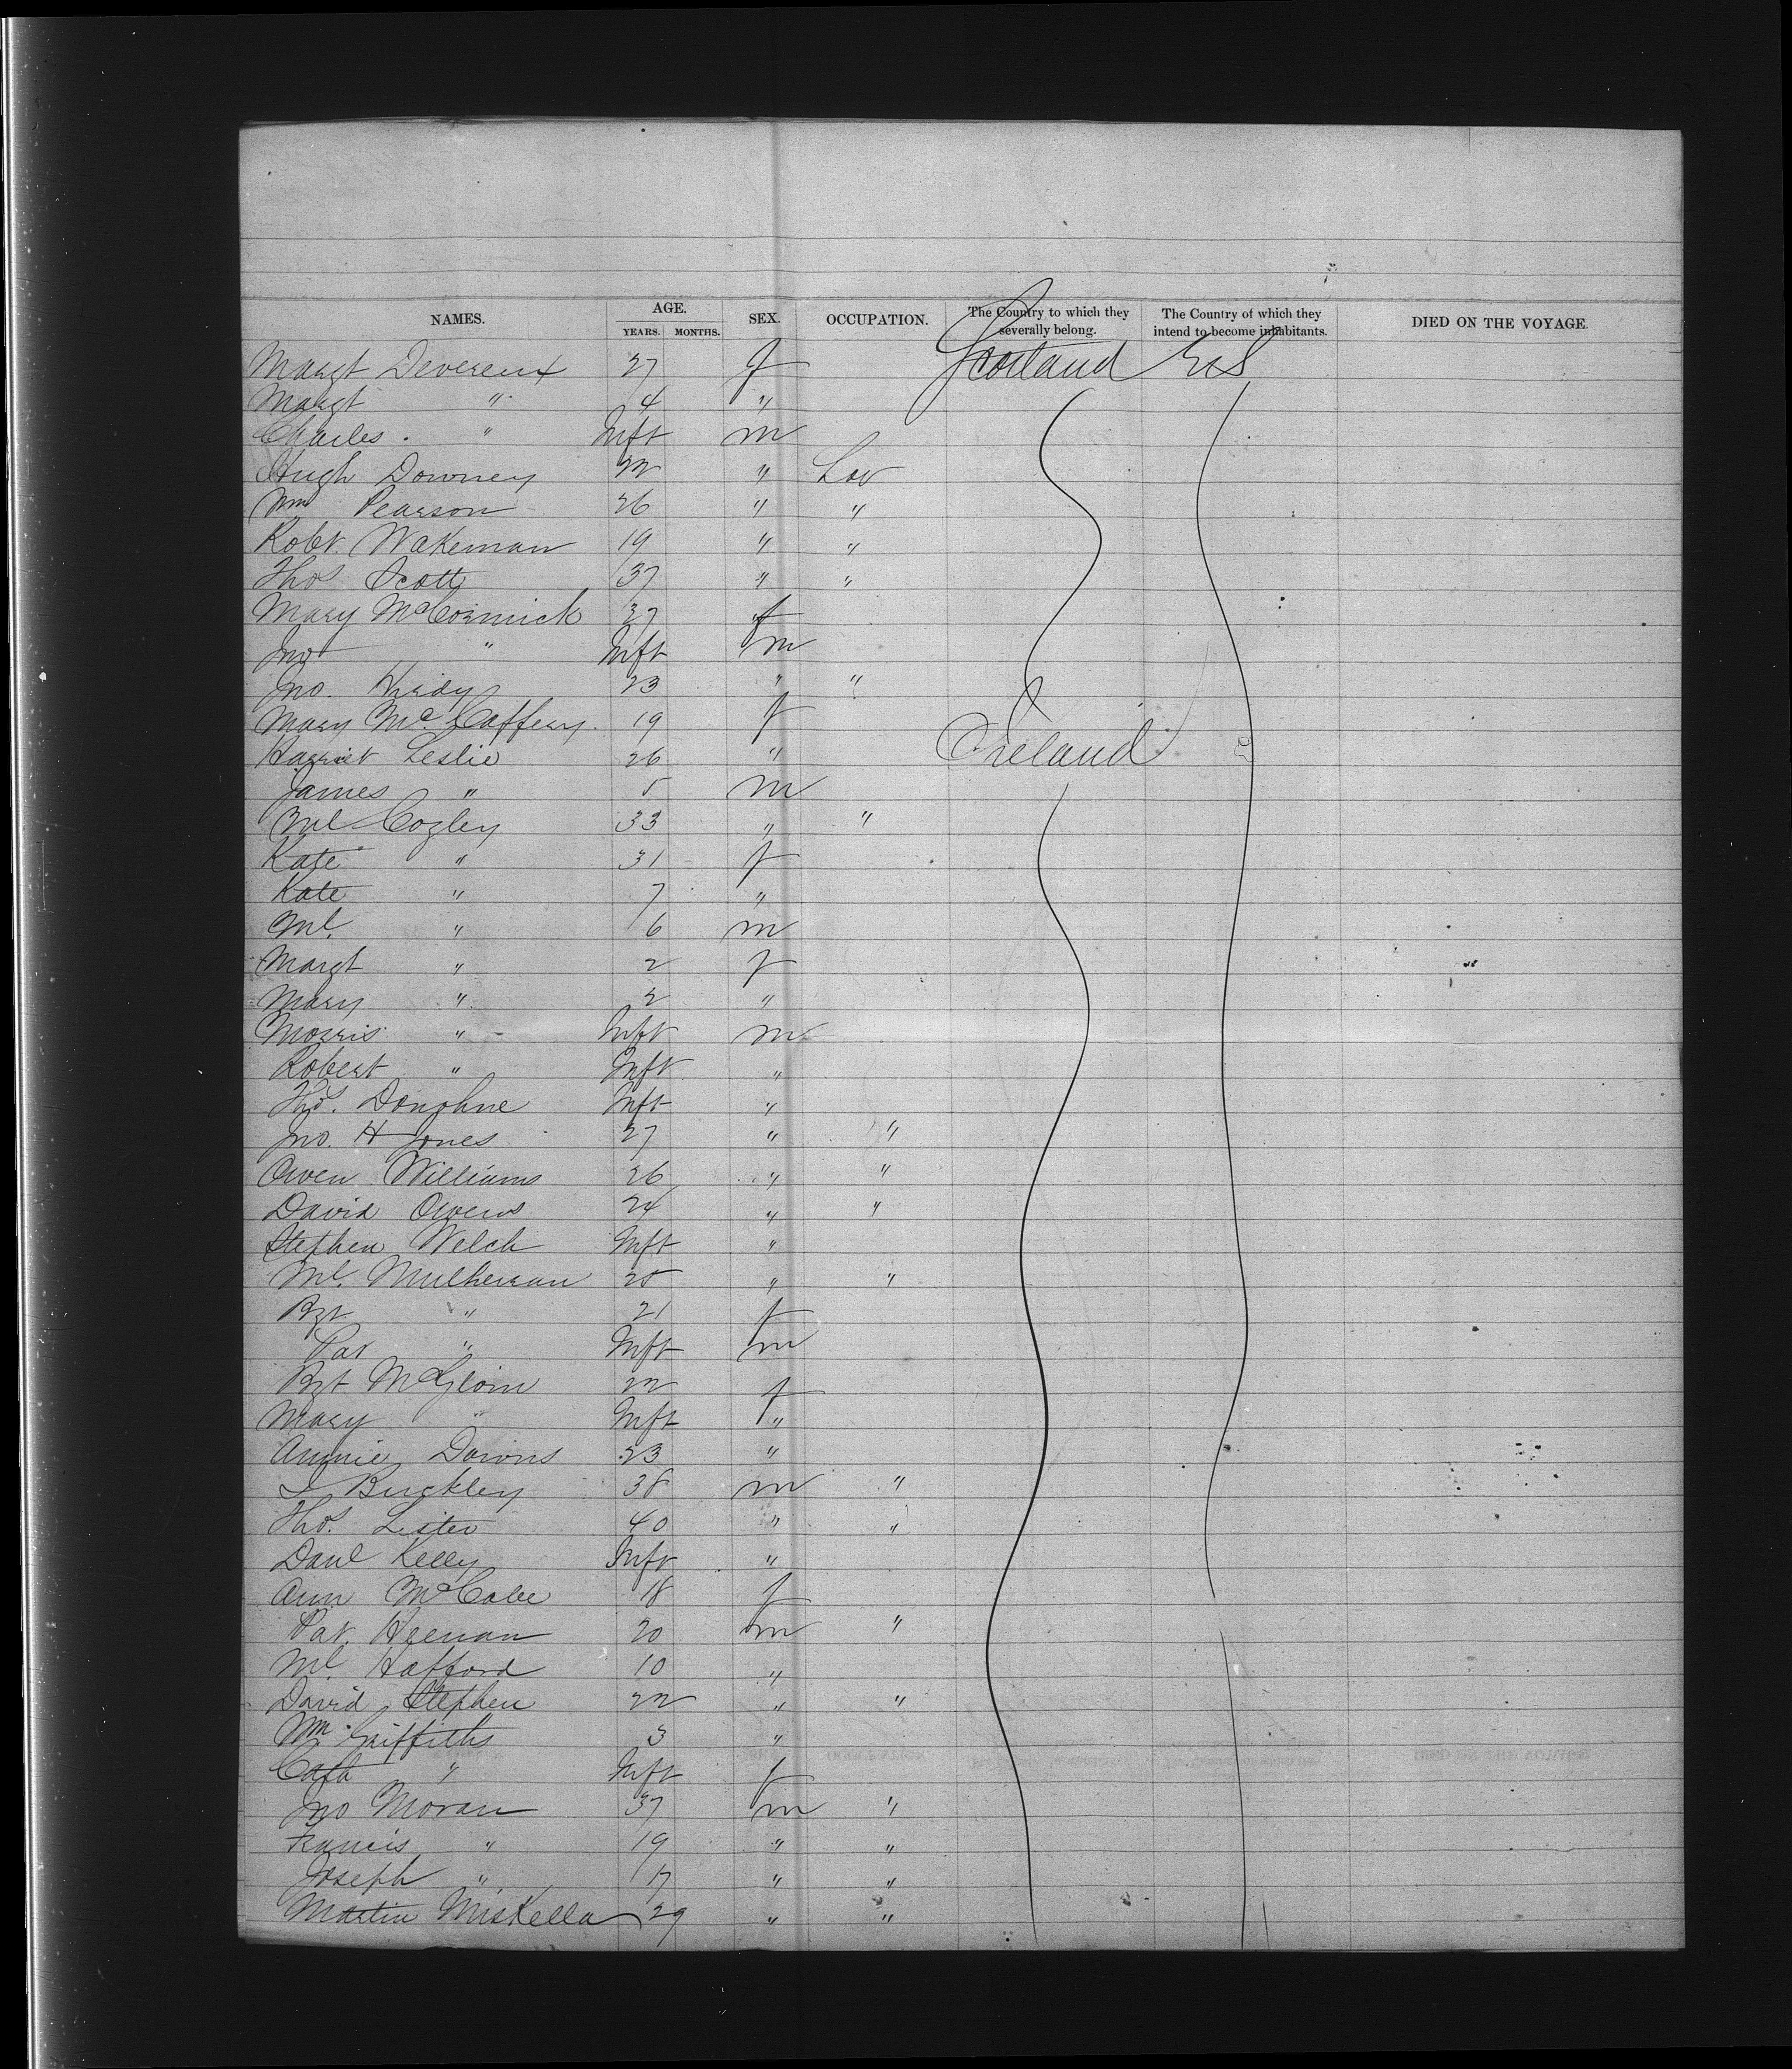 NAMES. AGE. YEARS. MONTHS. SEX. OCCUPATION. The Country to which they severally belong. The Country of which they intend to become inhabitants. DIED ON THE VOYAGE.
Margt Devereux 27 f Scotland US
Margt " 4 "
Charles " Inft m
Hugh Downey 22 " Lab
Wm Pearson 26 " "
Robt. Wakeman 19 " "
Thos Scott 37 " "
Mary McCormick 27 f
Jno " Inft m
Jno. 23 " "
Mary McCaffery 19 f
Harriet Leslie 26 " Ireland
James " 5 m
Ml Cozley 33 " "
Kate " 31 f
Kate " 7 "
Ml. " 6 m
Margt " 2 f
Mary " 2 "
Morris " Inft m
Robert " Inft "
Thos. Donohue Inft "
Jno. H Jones 27 " "
Owen Williams 26 " "
David Owens 24 " "
Stephen Welch Inft "
Ml. Mulherran 25 " "
Bgt " 21 f
Pat " Inft m
Bgt McGloin 22 f
Mary " Inft "
Annie Downs 23 "
Buckley 38 m "
Thos. Lister 40 " "
Danl Kelly Inft "
Ann McCabe 18 f
Pat. Keenan 20 m "
Ml. Hafford 10 "
David Stephen 22 " "
Wm Griffiths 3 "
Cath " Inft f
Jno Moran 37 m "
Francis " 19 " "
Joseph " 17 " "
Martin Miskella 29 " "